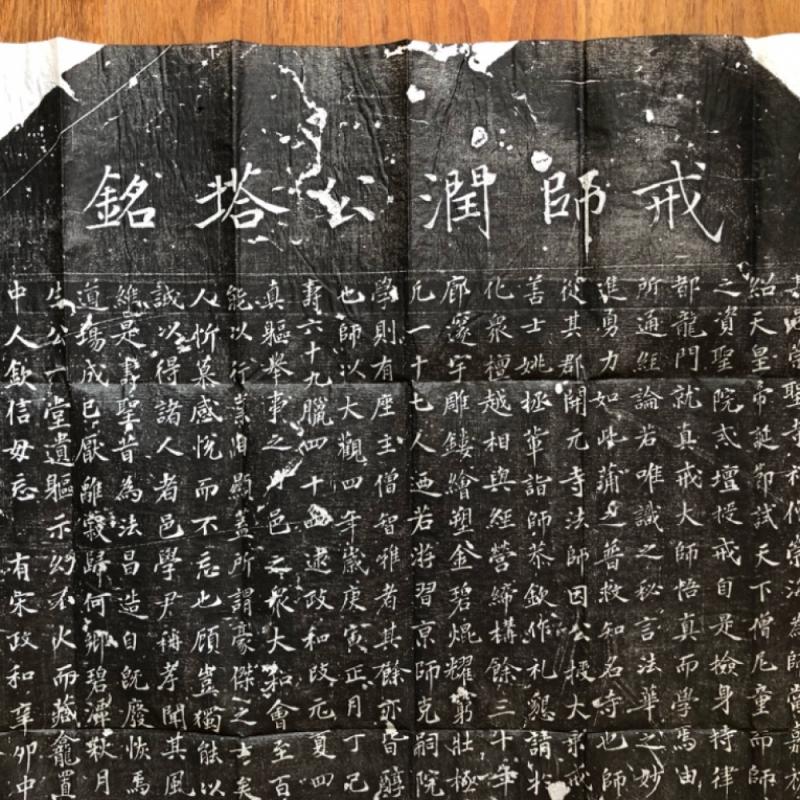 戒師潤公塔銘
紹天皇帝誕節試天下僧尼童而師
之資聖院弍壇授戒自是檢身持律
都龍門就真戒大師悟真而學焉由
所通經論若唯識之秘言法華之妙
進勇力如此蒲之普救知名寺也師
從其郡開元寺法師因公授大乘戒
善士姚拯輩詣師恭欽作礼懇請於
化衆檀越相與經營締構餘三十年
廊邃宇雕鏤繪塑金碧焜耀窮壯極
凡一十七人迺若游習京師克嗣院
學則有座主僧智雅者其餘亦皆醇
也師以大觀四年歲庚寅正月丁己
壽六十九臘四十四逮政和改元夏四
真軀舉事之邑之衆大和會至百
能以行業顯蓋所謂豪傑之士矣
人忻慕感悅而不忘也顧豈獨能以
誠以得諸人者邑學尹稱孝聞其風
維是壽聖昔為法昌造自既廢恢焉
道場成已厭離寂歸何鄉碧潭秋月
生公一堂遺軀示幻不火而藏龕置
中人欽信毋忘 有宋政和辛卯中